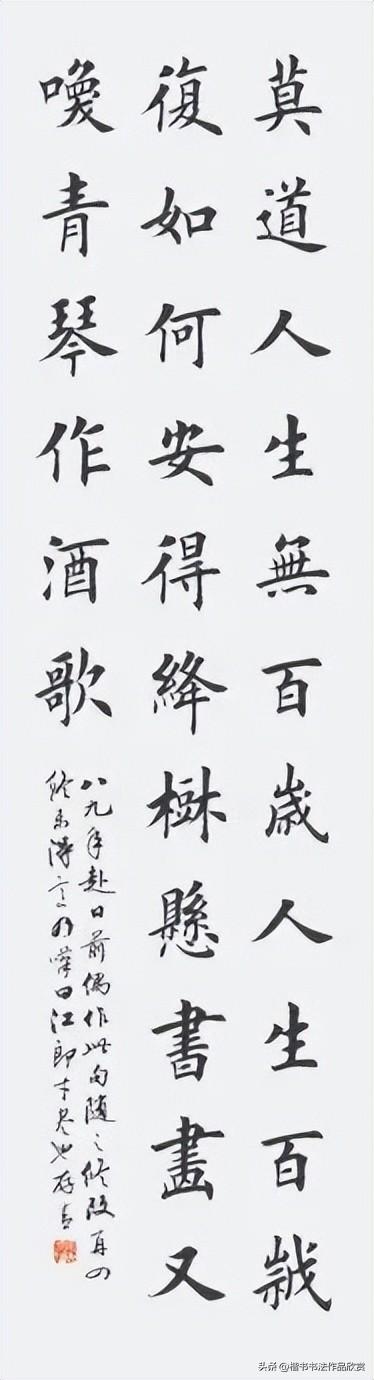 莫道人生無百歲人生百歲
復如何安得絳樹懸書畫又
喚青琴作酒歌
八九年赴日前偶作此句随之修改再四
終未得意乃嘆曰江郎才尽也
头条@楷书书法作品欣赏